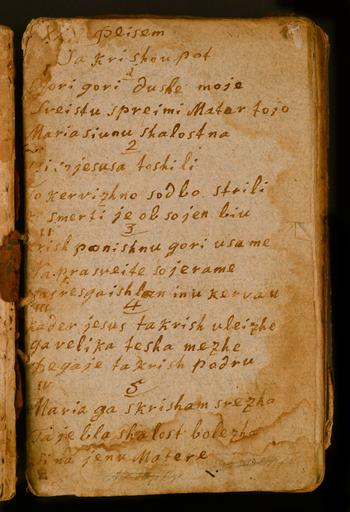 Peisem
Va krishou pot
1
gori gori dushe moje
Sveistu spreimi Mater tojo
Maria siunu shalostna
2
jesusa toshili
kervizhno sodbo strili
smerti je obsojen biu
3
krish ponishnu gori usame
Na prasveite sojerame
resgaishlan inu kervau
4
kader jesus ta krish uleizhe
ga velika tesha mezhe
Degaje ta krish padru
5
Maria ga skrisham srezha
Ta je bla shalost bolezha
jenu Matere